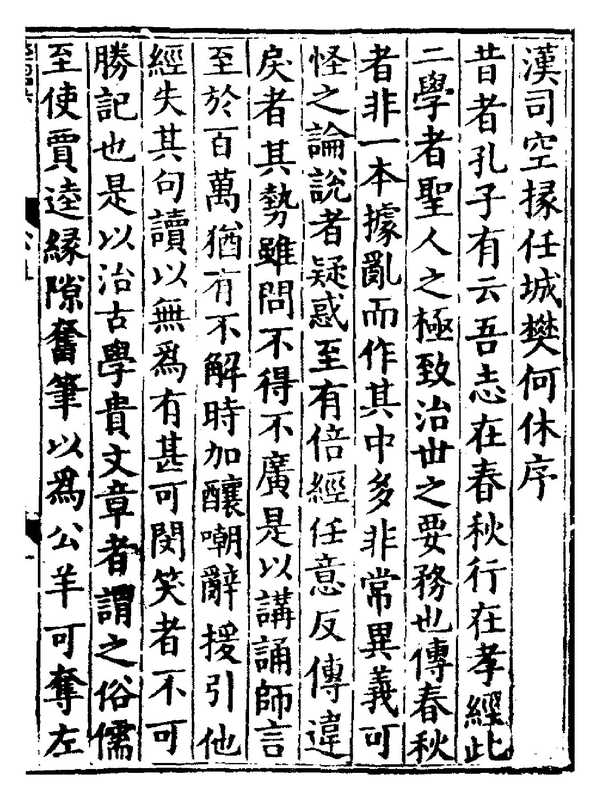 漢司空掾任城樊何休序
昔者孔子有云吾志在春秋行在孝經此
二學者聖人之極致治世之要務也傳春秋
者非一本據亂而作其中多非常異義可
怪之論說者疑惑至有倍經任意反傳違
戾者其勢雖問不得不廣是以講誦師言
至於百萬猶有不解時加釀嘲辭援引他
經失其句讀以無爲有甚可閔笑者不可
勝記也是以治古學貴文章者謂之俗儒
至使賈逵緣隙奮筆以爲公羊可奪左